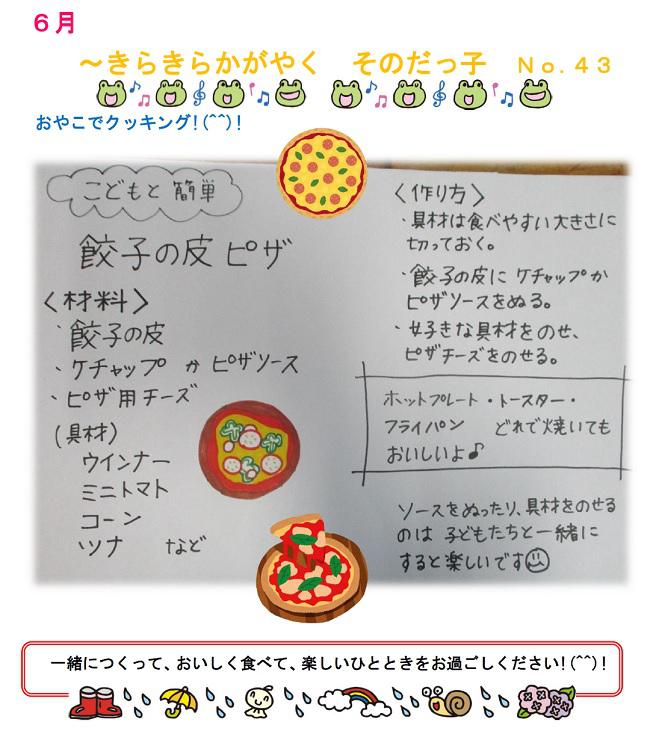 6月
～きらきらかがやく　そのだっ子　No.43
おやこでクッキング！(^^)！
こどもと 簡単
餃子の皮ピザ
〈材料〉
・餃子の皮
・ケチャップ か ピザソース
・ピザ用チーズ
(具材)
ウインナー
ミニトマト
コーン
ツナ　など
〈作り方〉
・具材は食べやすい大きさに
切っておく。
・餃子の皮に ケチャップか
ピザソースをぬる。
・好きな具材をのせ、
ピザチーズをのせる。
ホットプレート・トースター・
フライパン　どれで焼いても
おいしいよ♪
ソースをぬったり、具材をのせる
のは 子どもたちと一緒に
すると楽しいです
一緒につくって、おいしく食べて、楽しいひとときをお過ごしください！(^^)！